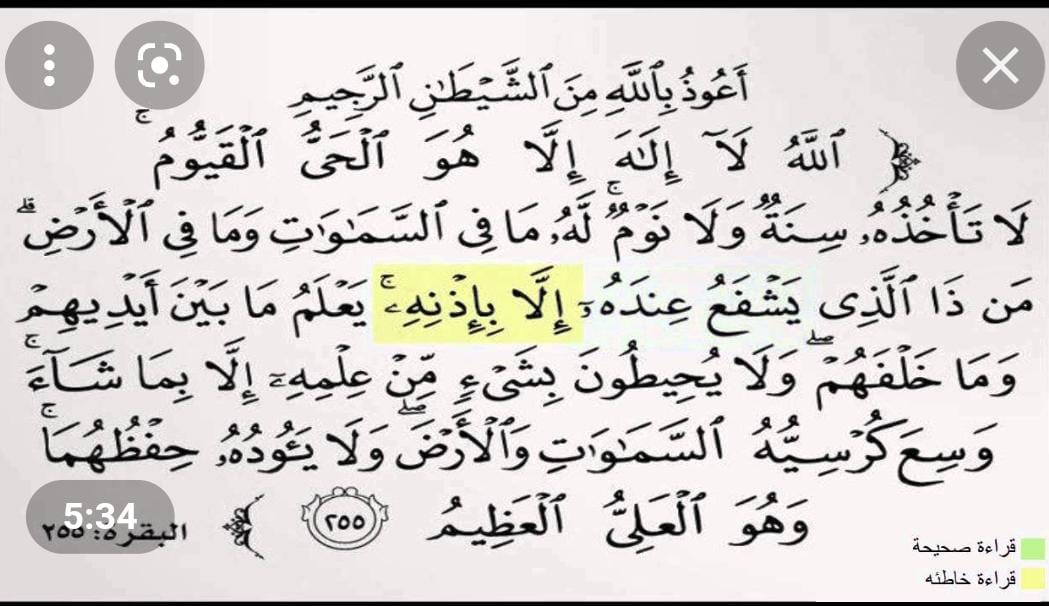 أَعُوذُ بِٱللَّهِ مِنَ ٱلشَّيْطَٰنِ ٱلرَّجِيمِ
ٱللَّهُ لَآ إِلَٰهَ إِلَّا هُوَ ٱلْحَىُّ ٱلْقَيُّومُ ۚ
لَا تَأْخُذُهُۥ سِنَةٌ وَلَا نَوْمٌ ۚ لَّهُۥ مَا فِى ٱلسَّمَٰوَٰتِ وَمَا فِى ٱلْأَرْضِ ۗ
مَن ذَا ٱلَّذِى يَشْفَعُ عِندَهُۥٓ إِلَّا بِإِذْنِهِۦ ۚ يَعْلَمُ مَا بَيْنَ أَيْدِيهِمْ
وَمَا خَلْفَهُمْ ۖ وَلَا يُحِيطُونَ بِشَىْءٍ مِّنْ عِلْمِهِۦٓ إِلَّا بِمَا شَآءَ ۚ
وَسِعَ كُرْسِيُّهُ ٱلسَّمَٰوَٰتِ وَٱلْأَرْضَ ۖ وَلَا يَـُٔودُهُۥ حِفْظُهُمَا ۚ
وَهُوَ ٱلْعَلِىُّ ٱلْعَظِيمُ ٢٥٥ البقرة: ٢٥٥
5:34
قراءة صحيحة
قراءة خاطئه